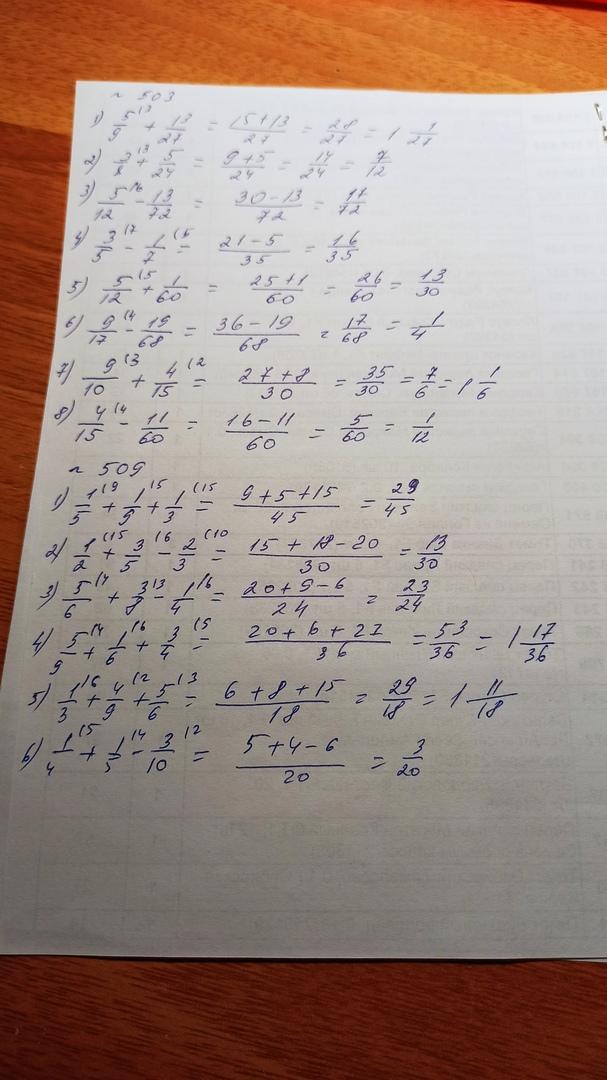 № 503
1) 5/9 (3 + 13/27 = (15+13)/27 = 28/27 = 1 1/27
2) 3/8 (3 + 5/24 = (9+5)/24 = 14/24 = 7/12
3) 5/12 (6 - 13/72 = (30-13)/72 = 17/72
4) 3/5 (7 - 1/7 (5 = (21-5)/35 = 16/35
5) 5/12 (5 + 1/60 = (25+1)/60 = 26/60 = 13/30
6) 9/17 (4 - 19/68 = (36-19)/68 = 17/68 = 1/4
7) 9/10 (3 + 4/15 (2 = (27+8)/30 = 35/30 = 7/6 = 1 1/6
8) 4/15 (4 - 11/60 = (16-11)/60 = 5/60 = 1/12
№ 509
1) 1/5 (9 + 1/9 (5 + 1/3 (15 = (9+5+15)/45 = 29/45
2) 1/2 (15 + 3/5 (6 - 2/3 (10 = (15+18-20)/30 = 13/30
3) 5/6 (4 + 3/8 (3 - 1/4 (6 = (20+9-6)/24 = 23/24
4) 5/9 (4 + 1/6 (6 + 3/4 (5 = (20+6+27)/36 = 53/36 = 1 17/36
5) 1/3 (6 + 4/9 (2 + 5/6 (3 = (6+8+15)/18 = 29/18 = 1 11/18
6) 1/4 (5 + 1/5 (4 - 3/10 (2 = (5+4-6)/20 = 3/20